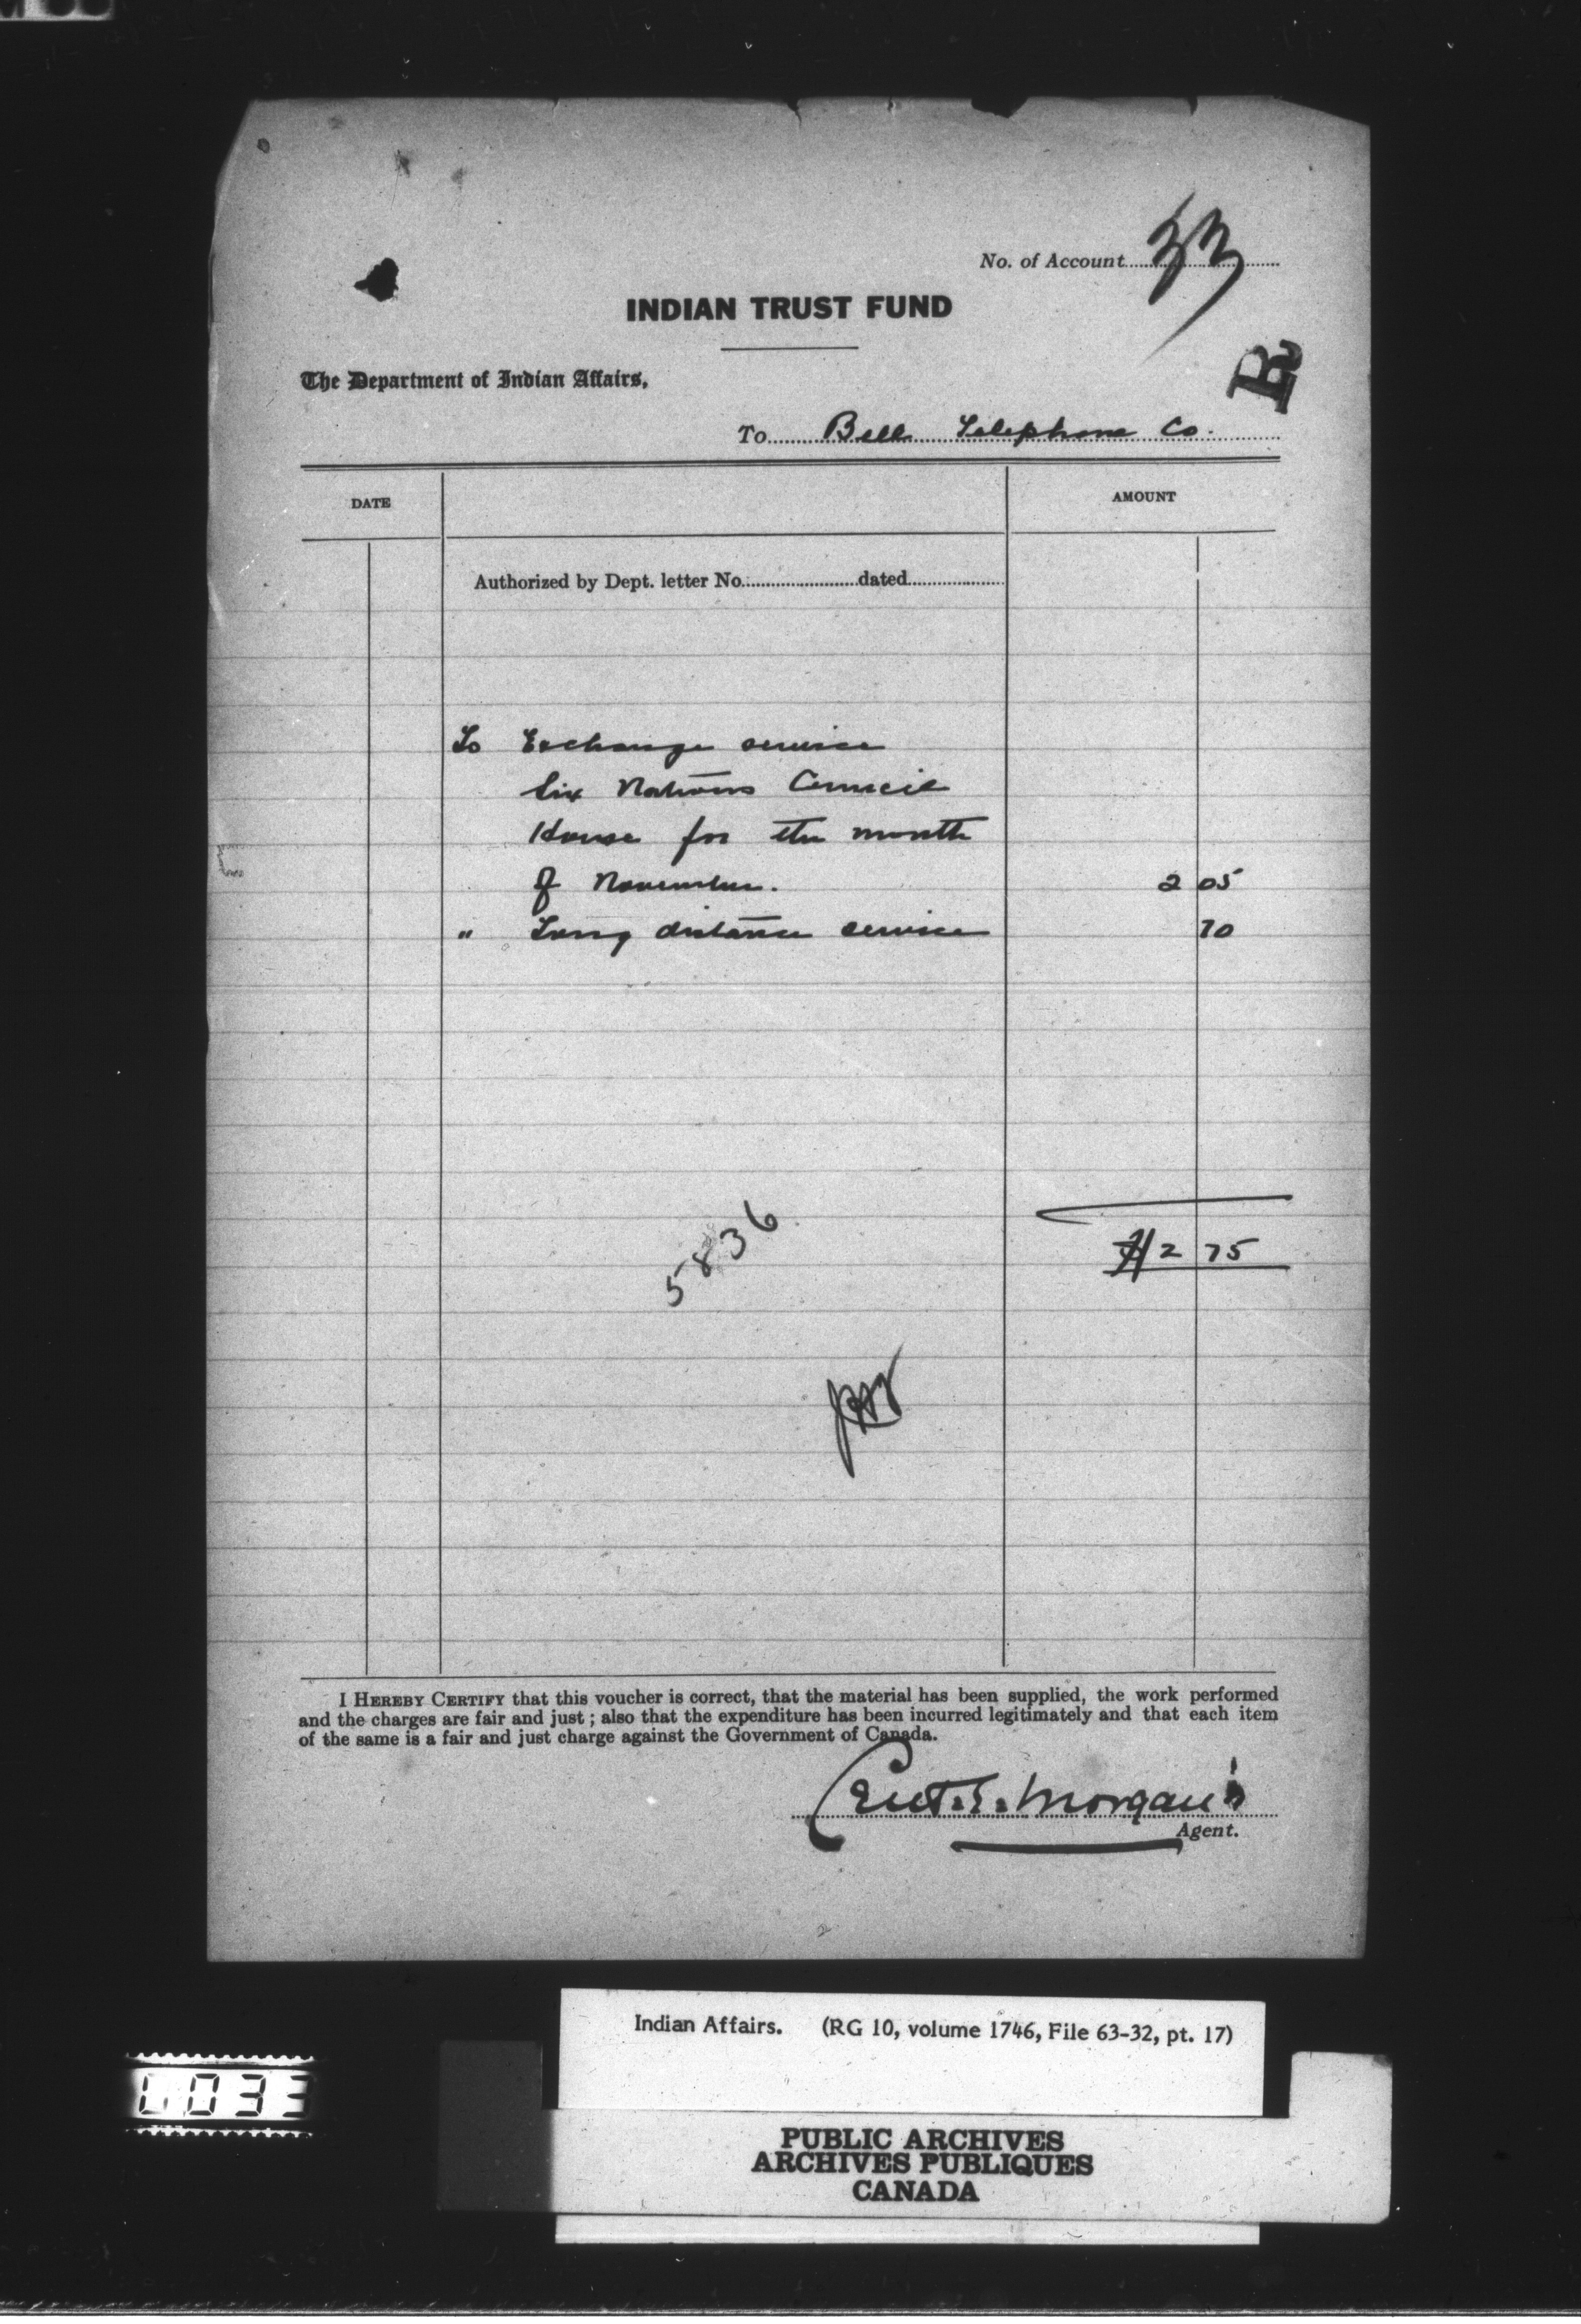 No. of Account 33
INDIAN TRUST FUND
R
The Department of Indian Affairs,
To Bell Telephone Co.
DATE
AMOUNT
Authorized by Dept. letter No. dated
To Exchange service
Six Nations Council
House for the month
of November. 2 05
" Long distance service 70
$ 2 75
5836
I HEREBY CERTIFY that this voucher is correct, that the material has been supplied, the work performed
and the charges are fair and just; also that the expenditure has been incurred legitimately and that each item
of the same is a fair and just charge against the Government of Canada.
Morgan
Agent.
Indian Affairs. (RG 10, volume 1746, File 63-32, pt. 17)
PUBLIC ARCHIVES
ARCHIVES PUBLIQUES
CANADA